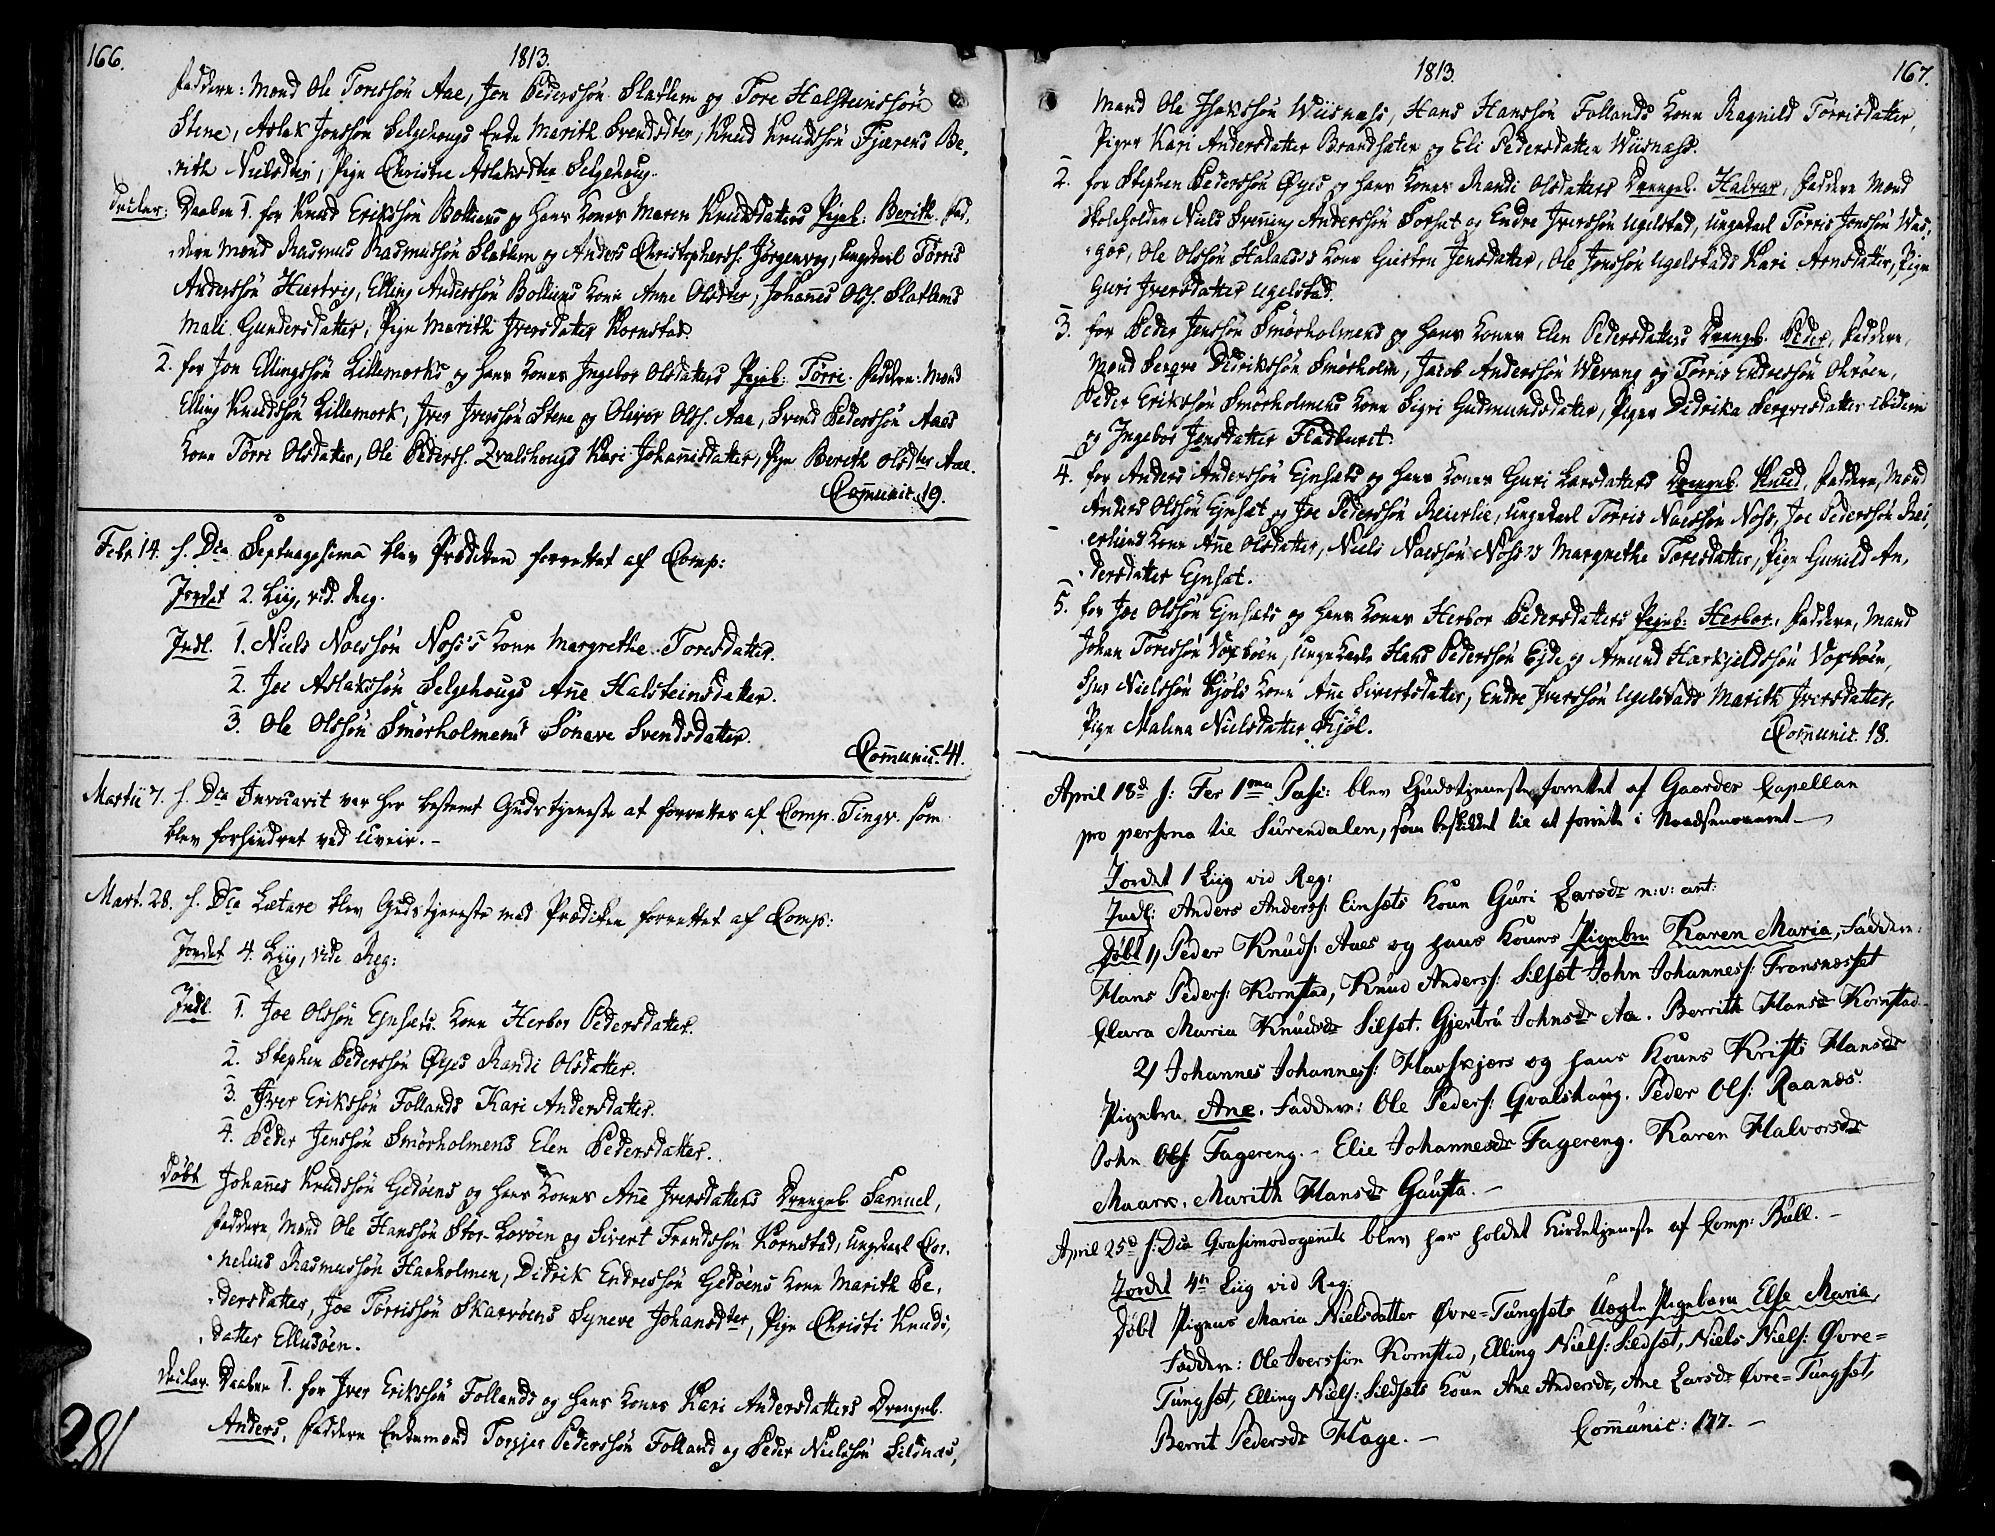 166.
1813.
Faddere: Mænd Ole Toressøn Aae, Jon Pederssøn Slatlem og Tore Halsteinssøn
Stene, Aslak Jonssøn Selgehougs Enke Marith Svendsdter, Knud Knudssøn Fjærens Be,
rith Nielsdter, Pige Christie Aslaksdter Selgehoug.
declar: Daaben 1. for Knud Erikssøn Bolliens og hans Kones Maren Knudsdatters Pigeb: Berith. Fad,
dere Mænd Rasmus Rasmussøn Slatlem og Anders Christophers: Jørgenvog, ungkarl Tørris
Anderssøn Hustvey, Elling Anderssøn Bolliens Kone Anne Olsdter, Johanes Ols. Slatlems
Mali Gundersdatter, Pige Marith Iversdatter Kornstad.
2. for Jon Ellingssøn Lillemorks og hans Kones Ingebor Olsdatters Pigeb: Torri. Faddere: Mænd
Elling Knudssøn Lillemork, Iver Iverssøn Stene og Oliver Ols. Aae, Svend Pederssøn Aaes
Kone Torri Olsdatter, Ole Peders. Qvalshougs Kari Johanisdatter, Pige Berith Olsdter Aae.
Comunic. 19.
Febr. 14. s. Dca Septuagesima blev Prædiken forrettet af Comp:
Jordet 2. Liig, vid. Reg.
Indl. 1. Niels Noessøn Noss's Kone Margrethe Toresdatter.
2. Joe Aslakssøn Selgehougs Ane Halsteinsdatter.
3. Ole Olssøn Smørholmens Sønave Svendsdatter.
Comunic. 41.
Martii 7. s. Dca Invocavit var her bestemt Gudstjeneste at forrettes af Comp. Tingv. som
blev forhindret ved Uveir. -
Mart. 28. s. Dca Lætare blev Gudstjeneste med Prædiken forrettet af Comp:
Jordet 4. Liig, vide Reg:
Indl. 1. Joe Olssøn Ejnsæts Kone Herbor Pedersdatter.
2. Stephen Pederssøn Øyes Randi Olsdatter.
3. Iver Erikssøn Follands Kari Andersdatter.
4. Peder Jenssøn Smørholmens Elen Pedersdatter.
Døbt Johanes Knudssøn Gedøens og hans Kones Ane Iversdatters Drengeb. Samuel,
Faddere, Mænd Ole Hanssøn Stor-Lovøen og Sivert Frandssøn Kornstad, Ungkarl Cor,
nelius Rasmussøn Haaholmen, Didrik Endressøn Gedøens Kone Marith Pe,
dersdatter, Joe Tørrissøn Skarvøens Syneve Johansdter, Pige Christi Knuds,
datter Ellusøen.
declar. Daaben 1. for Iver Erikssøn Follands og hans Kones Kari Andersdatters Drengeb.
Anders, Faddere Enkemænd Torgjer Pederssøn Folland og Peder Nielssøn Sildnæs,
281
1813.
167.
Mand Ole Isakssøn Wiisnæss, Hans Hanssøn Follands Kone Ragnild Tørrisdatter,
Piger Kari Andersdatter Brandsæter og Eli Pedersdatter Wiisnæss.
2. for Stephen Pederssøn Øyes og hans Kones Randi Olsdatters Drengeb. Halvar, Faddere Mænd
Skoleholder Niels Svenning Anderssøn Torset og Endre Iverssøn Ugelstad, Ungkarl Tørris Jonssøn Waa,
gøe, Ole Olssøn Halaas's Kone Gurtru Jensdatter, Ole Jonssøn Ugelstads Kari Arnsdatter, Pige
Guri Iversdatter Ugelstad.
3. for Peder Jenssøn Smørholmens og hans Kones Elen Pedersdatters Drengeb. Peder, Faddere,
Mænd Serqve Didrikssøn Smørholm, Jacob Anderssøn Wevang og Tørris Endressøn Ohrøen,
Peder Erikssøn Smørholmens Kone Sigri Gudmundsdatter, Piger Didrika Serqvesdatter ibidem
og Ingebor Jensdatter Fladsæt.
4. for Anders Anderssøn Ejnsæts og hans Kones Guri Larsdatters Drengeb. Knud, Faddere, Mænd
Anders Olssøn Ejnsæt og Joe Pederssøn Reierlie, Ungkarl Tørris Noessøn Noss, Joe Pederssøn Rei,
erliens Kone Ane Olsdatter, Niels Noessøn Noss's Margrethe Toresdatter, Pige Gunild An,
dersdatter Ejnset.
5. for Joe Olssøn Ejnsæts og hans Kones Herbor Pedersdatters Pigeb: Herbor, Faddere, Mænd
Johan Toressøn Voxbøen, Ungekarle Hans Pederssøn Eyde og Amund Harkjeldssøn Voxbøen,
Sjur Nielssøn Skjøls Kone Ane Sivertsdatter, Endre Iverssøn Ugelstads Marith Iversdatter,
Pige Malena Nielsdatter Skjøl.
Comunic. 18.
April 18d s: Fer 1ma Pasc: blev Gudstjeneste forrettet af Gaarder Capellan
pro persona til Surendalen, som beskikket til at forrette i Naadsensaaret. -
Jordet 1 Liig vid Reg:
Indl: Anders Anderss: Einsæts Kone Guri Larsdr n:v: ant:
Døbt 1, Peder Knuds: Aaes og hans Kones Pigebrn Karen Maria, Faddere:
Hans Peders: Kornstad, Knud Anderss: Silsæt John Johanness: Fransnæsset
Clara Maria Knudsdr Silsæt. Gjertru Johnsdr Aa. Berrith Hansdr Kornstad -
2, Johannes Johanness: Havskjærs og hans Kones Kristi Hansdr
Pigebrn Ane. Faddere: Ole Peders: Qvalshaug. Peder Ols: Raanæs.
John Ols: Fagereng. - Elie Johannesdr Fagereng. Karen Halvorsdr
Maark. Marith Hansdr Gausta. -
April 25d s: Dca Qvasimodogenits blev her holdet Kirketjeneste af Comp: Bull. -
Jordet 4re Liig vid Reg:
Døbt Pigens Maria Nielsdatter Øvre=Tungsets Uægte Pigebarn Else Maria,
Faddere: Ole Iverssøn Kornstad, Elling Niels: Sildset, Niels Niels: Øvre=
Tungset, Elling Niels: Sildsets Kone Ane Andersdr, Ane Larsdr Øvre=Tungset,
Bernt Pedersdr Hage. -
Comunic: 177. -